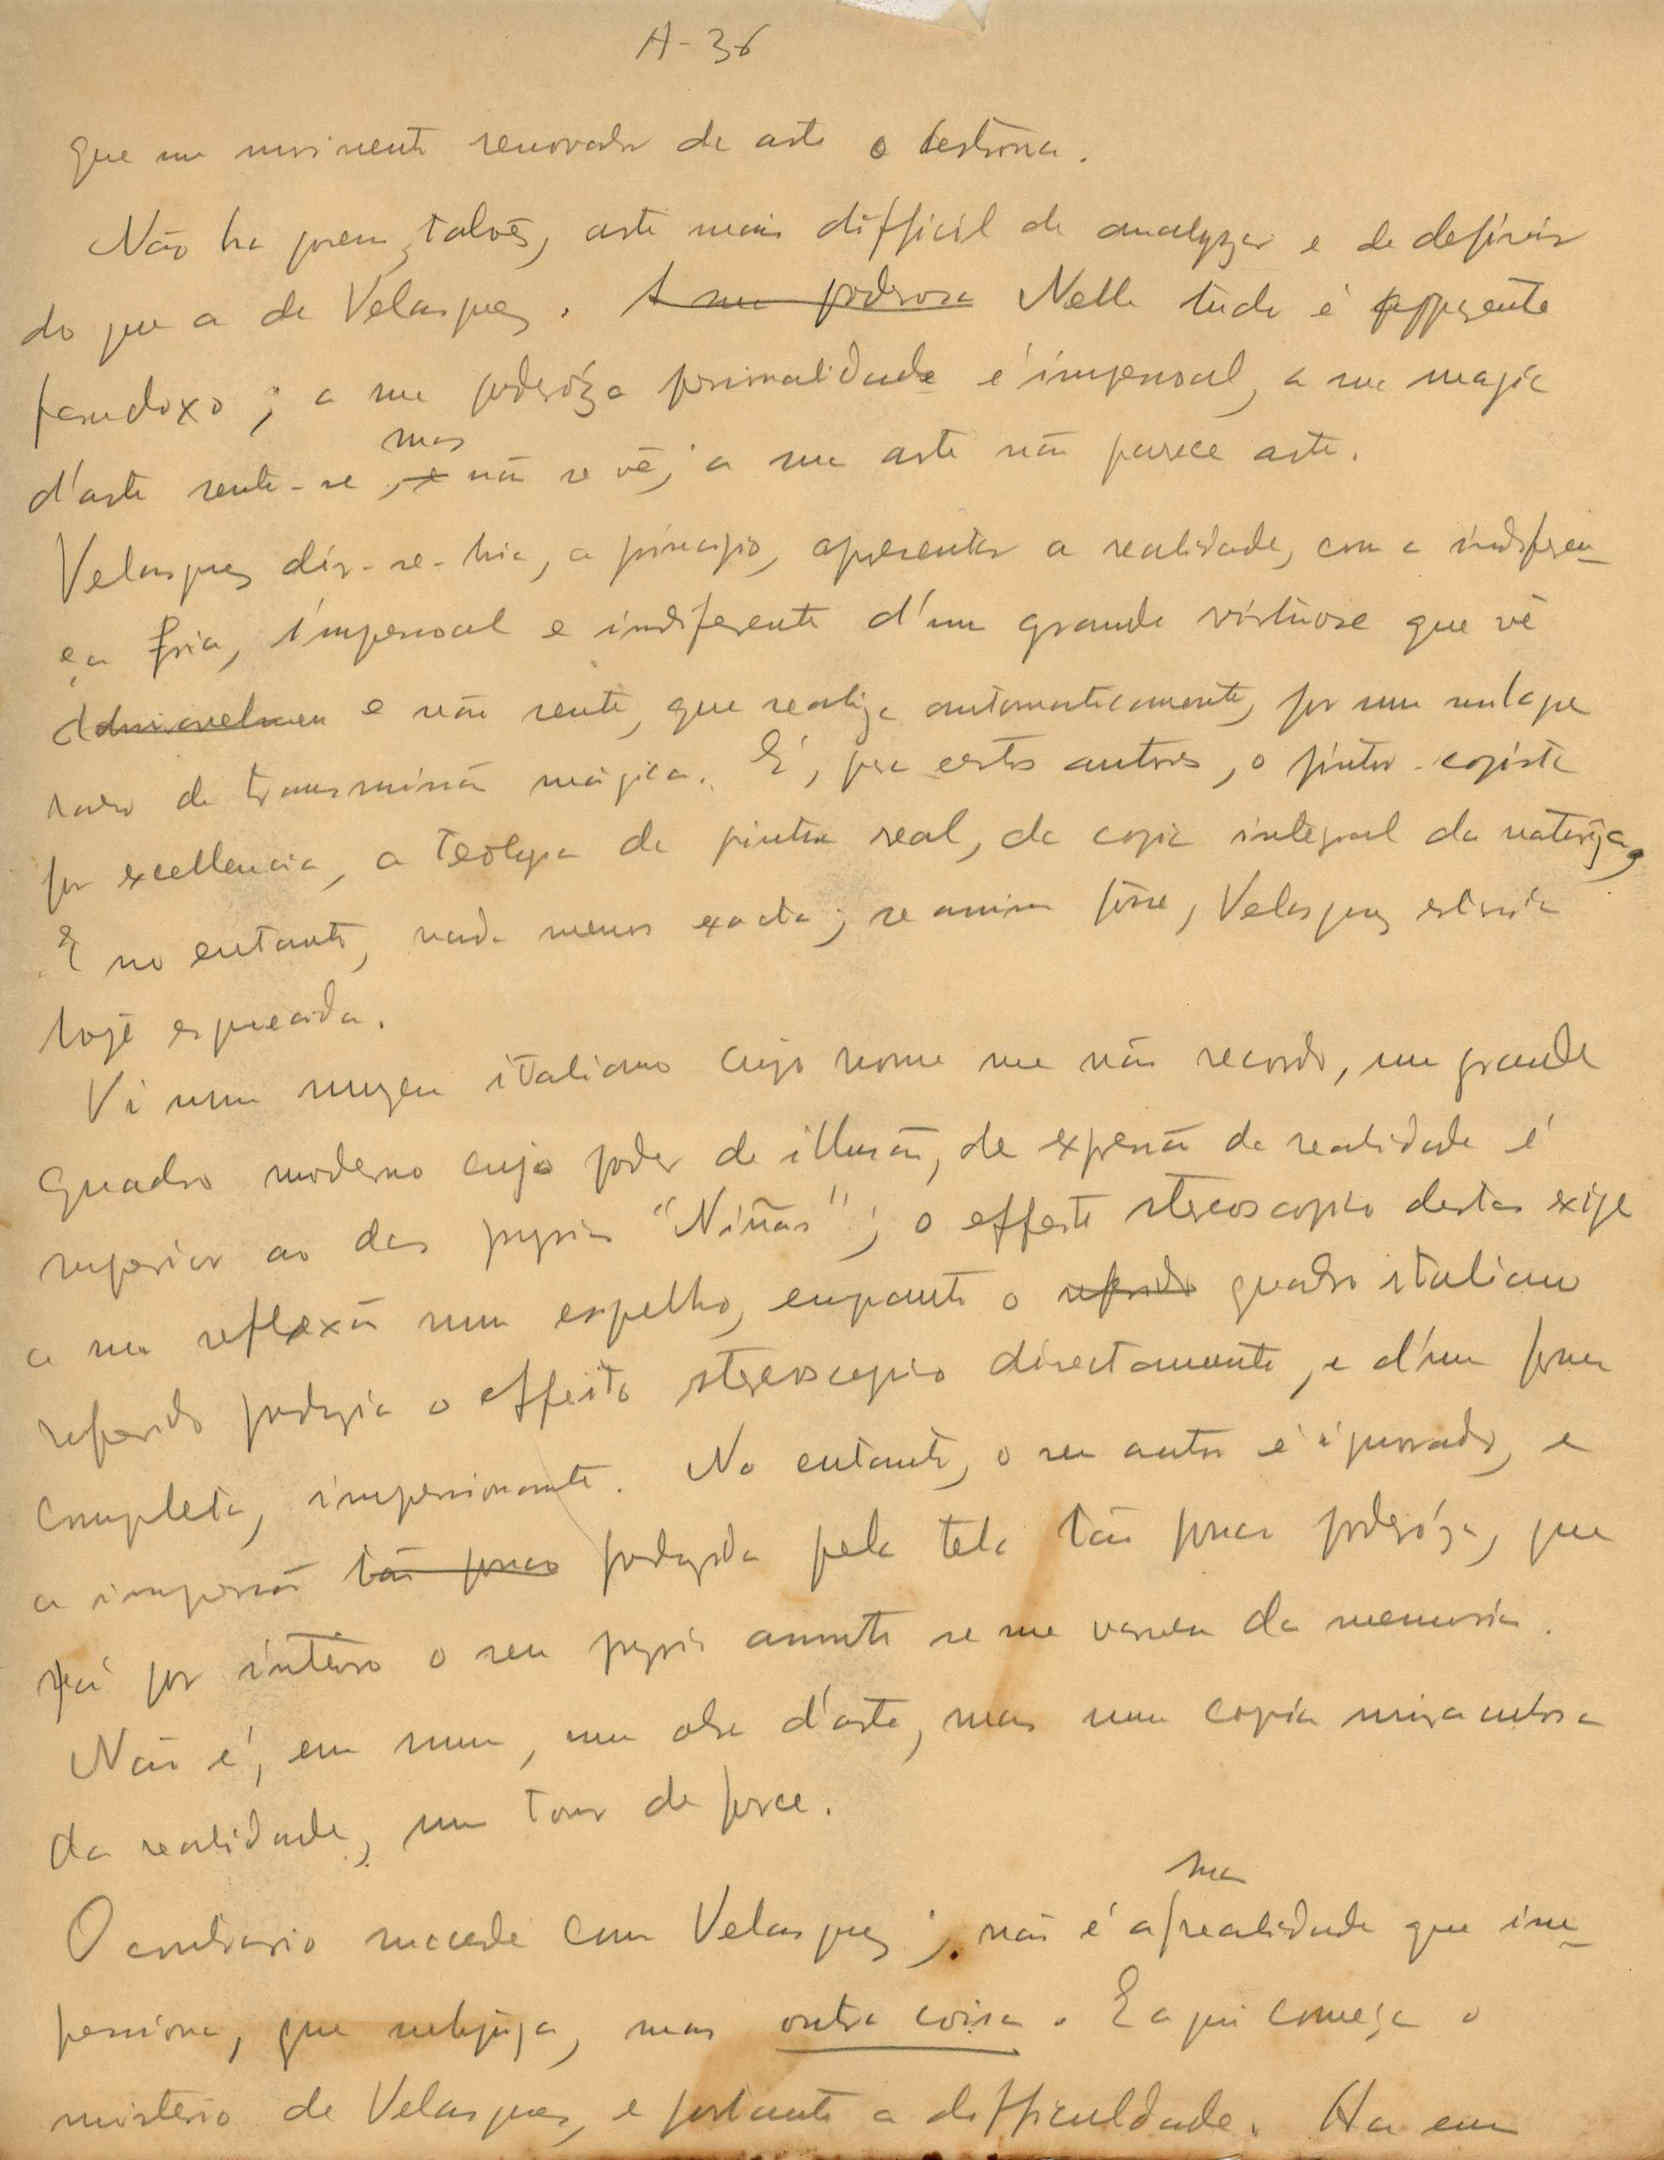 A-36
que um movimento renovador de arte o destrona.
Não ha porem, talvês, arte mais difficil de analyzar e de definir
do que a de Velasquez. A sua poderosa Nelle tudo é apparente
paradoxo; a sua poderóza personalidade é impersoal, a sua magia
mas
d'arte sente-se, e não se vê; a sua arte não parece arte.
Velasquez dir-se-hia, a principio, apresentar a realidade, com a indiferen-
ça fria, impersoal e indiferente d'um grande virtuose que vê
admiravelmen e não sente, que realiza automaticamente, por um
de transmissão mágica. É, pra certos autores, o pintor-copista
por excellencia, a da pintura real, da copia integral da natureza,
E no entanto, nada menos exacto; se assim fosse, Velasquez estaria
hoje esquecido.
Vi num muzeu italiano cujo nome me não recordo, um grande
quadro moderno cujo poder de illusão, de expressão da realidade é
superior ao das proprias "Niñas"; o effeito stereoscopico destas exige
a sua reflexão num espelho, enquanto o referido quadro italiano
referido produzia o effeito stereoscopico directamente, e d'uma forma
completa, impressionante. No entanto, o seu autor é ignorado, e
a impressão tão pouco produzida pela tela tão pouco poderóza, que
já por inteiro o seu proprio assunto se me varreu da memoria.
Não é, em suma, uma obra d'arte, mas uma copia miraculosa
da realidade, um tour de force.
sua
O contrario sucede com Velasquez; não é a realidade que im-
pressiona, que subjuga, mas outra coisa. E aqui começa o
misterio de Velasquez, e portanto a difficuldade. Ha em